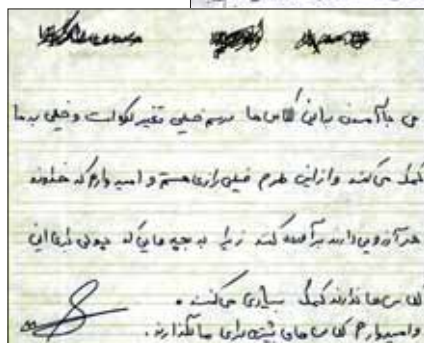 من با آمدن به این کلاس ها برایم خیلی تغییر کرده است و خیلی به ما
کمک می کنند و از این طرح خیلی راضی هستم و امیدوارم که خداوند
هر آرزویی دارند برآورده کند زیرا به بچه هایی که پولی برای این
کلاس ها ندارند کمک بسیاری می کنند.
و امیدوارم کلاس های بیشتری برای ما بگذارند.